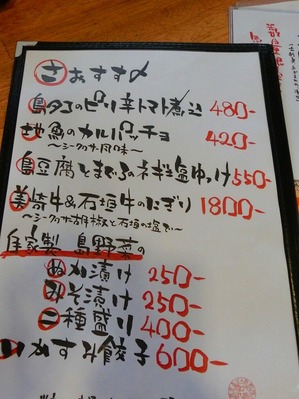 おすすめ
島タコのピリ辛トマト煮込 480-
地魚のカルパッチョ 420-
～シークヮサー風味～
島豆腐とまぐろのネギ塩ゆっけ 550-
美崎牛&石垣牛のにぎり 1800-
～シークヮサー胡椒と石垣の塩で～
自家製 島野菜の
ぬか漬け 250-
みそ漬け 250-
二種盛り 400-
いかすみ餃子 600-